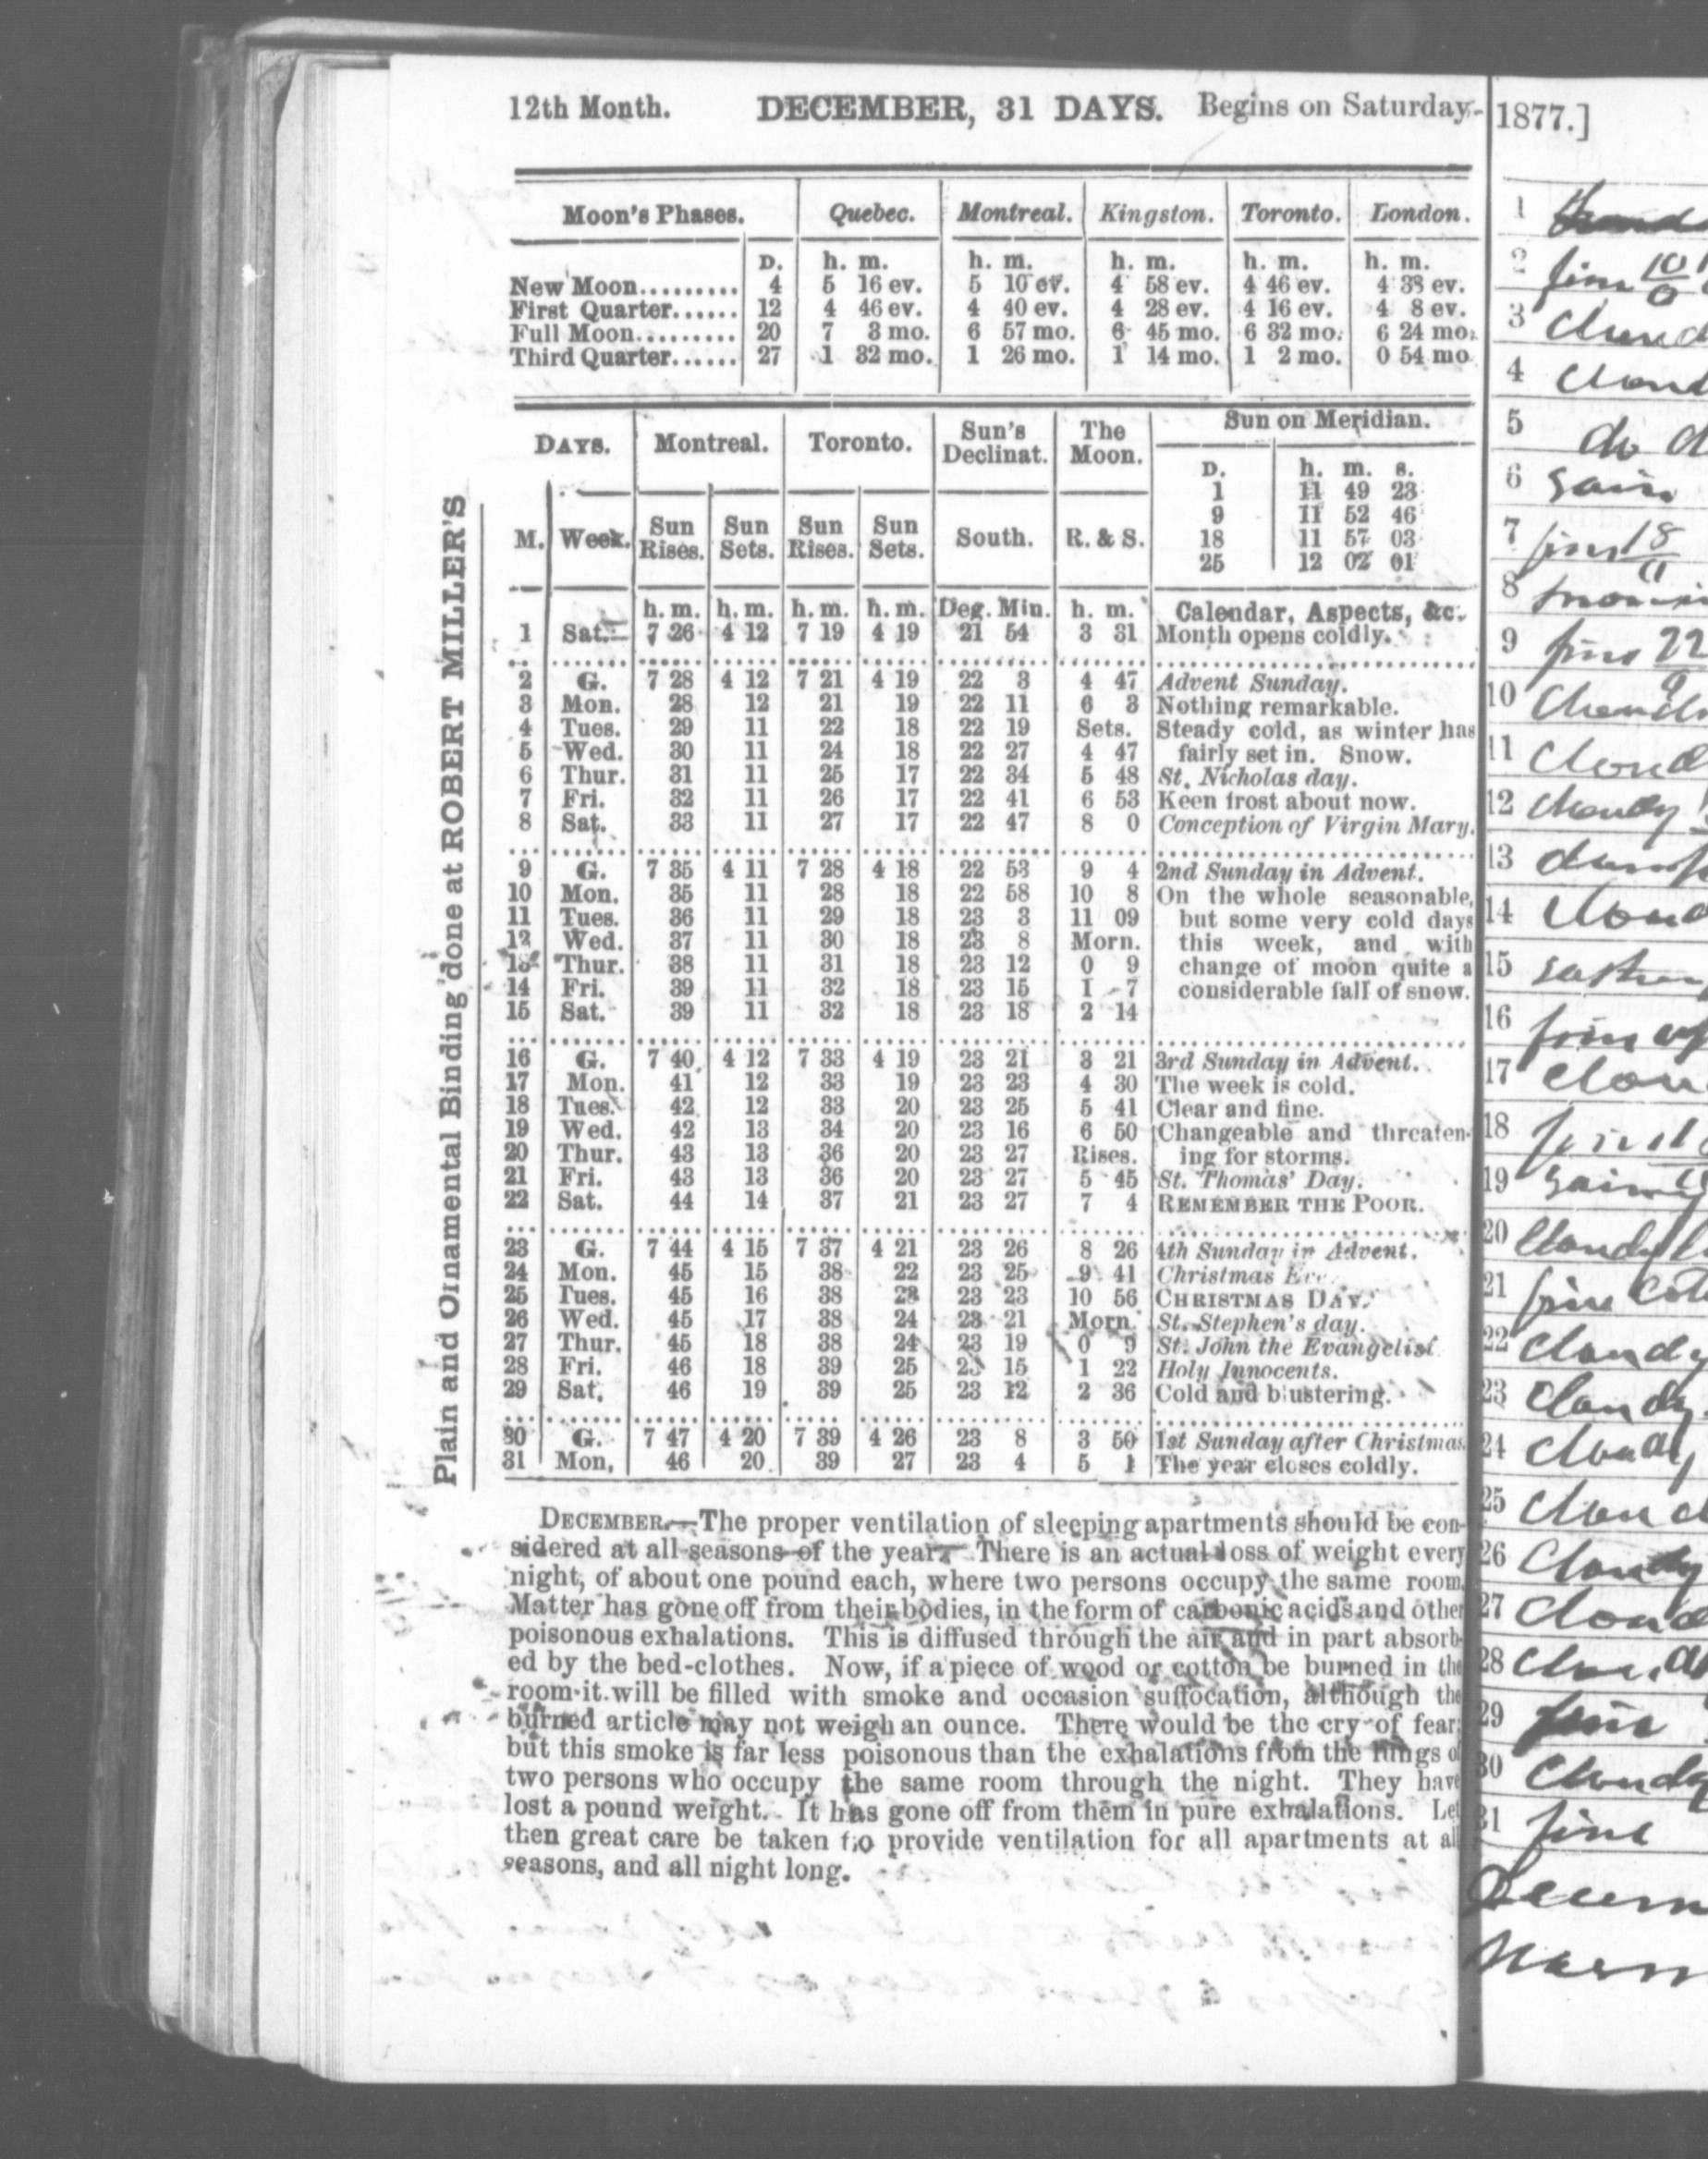 12th Month. DECEMBER, 31 DAYS. Begins on Saturday.
Moon's Phases. Quebec. Montreal. Kingston. Toronto. London.
D. h. m. h. m. h. m. h. m. h. m.
New Moon......... 4 5 16 ev. 5 10 ev. 4 58 ev. 4 46 ev. 4 38 ev.
First Quarter...... 12 4 46 ev. 4 40 ev. 4 28 ev. 4 16 ev. 4 8 ev.
Full Moon......... 20 7 3 mo. 6 57 mo. 6 45 mo. 6 32 mo. 6 24 mo.
Third Quarter...... 27 1 32 mo. 1 26 mo. 1 14 mo. 1 2 mo. 0 54 mo
DAYS. Montreal. Toronto. Sun's Declinat. The Moon. Sun on Meridian.
D. h. m. s.
1 11 49 23
9 11 52 46
18 11 57 03
25 12 02 01
M. Week. Sun Rises. Sun Sets. Sun Rises. Sun Sets. South. R. & S.
h. m. h. m. h. m. h. m. Deg. Min. h. m. Calendar, Aspects, &c.
1 Sat. 7 26 4 12 7 19 4 19 21 54 3 31 Month opens coldly.
2 G. 7 28 4 12 7 21 4 19 22 3 4 47 Advent Sunday.
3 Mon. 28 12 21 19 22 11 6 3 Nothing remarkable.
4 Tues. 29 11 22 18 22 19 Sets. Steady cold, as winter has
5 Wed. 30 11 24 18 22 27 4 47 fairly set in. Snow.
6 Thur. 31 11 25 17 22 34 5 48 St. Nicholas day.
7 Fri. 32 11 26 17 22 41 6 53 Keen frost about now.
8 Sat. 33 11 27 17 22 47 8 0 Conception of Virgin Mary.
9 G. 7 35 4 11 7 28 4 18 22 53 9 4 2nd Sunday in Advent.
10 Mon. 35 11 28 18 22 58 10 8 On the whole seasonable,
11 Tues. 36 11 29 18 23 3 11 09 but some very cold days
12 Wed. 37 11 30 18 23 8 Morn. this week, and with
13 Thur. 38 11 31 18 23 12 0 9 change of moon quite a
14 Fri. 39 11 32 18 23 15 1 7 considerable fall of snow.
15 Sat. 39 11 32 18 23 18 2 14
16 G. 7 40 4 12 7 33 4 19 23 21 3 21 3rd Sunday in Advent.
17 Mon. 41 12 33 19 23 23 4 30 The week is cold.
18 Tues. 42 12 33 20 23 25 5 41 Clear and fine.
19 Wed. 42 13 34 20 23 16 6 50 Changeable and threaten-
20 Thur. 43 13 36 20 23 27 Rises. ing for storms.
21 Fri. 43 13 36 20 23 27 5 45 St. Thomas' Day.
22 Sat. 44 14 37 21 23 27 7 4 REMEMBER THE POOR.
23 G. 7 44 4 15 7 37 4 21 23 26 8 26 4th Sunday in Advent.
24 Mon. 45 15 38 22 23 25 9 41 Christmas Eve.
25 Tues. 45 16 38 23 23 23 10 56 CHRISTMAS DAY.
26 Wed. 45 17 38 24 23 21 Morn. St. Stephen's day.
27 Thur. 45 18 38 24 23 19 0 9 St. John the Evangelist
28 Fri. 46 18 39 25 23 15 1 22 Holy Innocents.
29 Sat. 46 19 39 25 23 12 2 36 Cold and blustering.
30 G. 7 47 4 20 7 39 4 26 23 8 3 50 1st Sunday after Christmas
31 Mon, 46 20 39 27 23 4 5 1 The year closes coldly.
Plain and Ornamental Binding done at ROBERT MILLER'S
DECEMBER.—The proper ventilation of sleeping apartments should be con-
sidered at all seasons of the year. There is an actual loss of weight every
night, of about one pound each, where two persons occupy the same room.
Matter has gone off from their bodies, in the form of carbonic acids and other
poisonous exhalations. This is diffused through the air and in part absorb-
ed by the bed-clothes. Now, if a piece of wood or cotton be burned in the
room it will be filled with smoke and occasion suffocation, although the
burned article may not weigh an ounce. There would be the cry of fear;
but this smoke is far less poisonous than the exhalations from the lungs of
two persons who occupy the same room through the night. They have
lost a pound weight. It has gone off from them in pure exhalations. Let
then great care be taken to provide ventilation for all apartments at all
seasons, and all night long.
1877.]
1
2 fine 10
3
4
5 do
6 rain
7 fine 18
8
9 fine 22
10
11
12 cloudy
13
14
15
16 fine
17
18 fine
19
20 Cloudy
21 fine
22 cloudy
23 cloudy
24 cloudy
25
26 Cloudy
27
28
29 fine
30 cloudy
31 fine